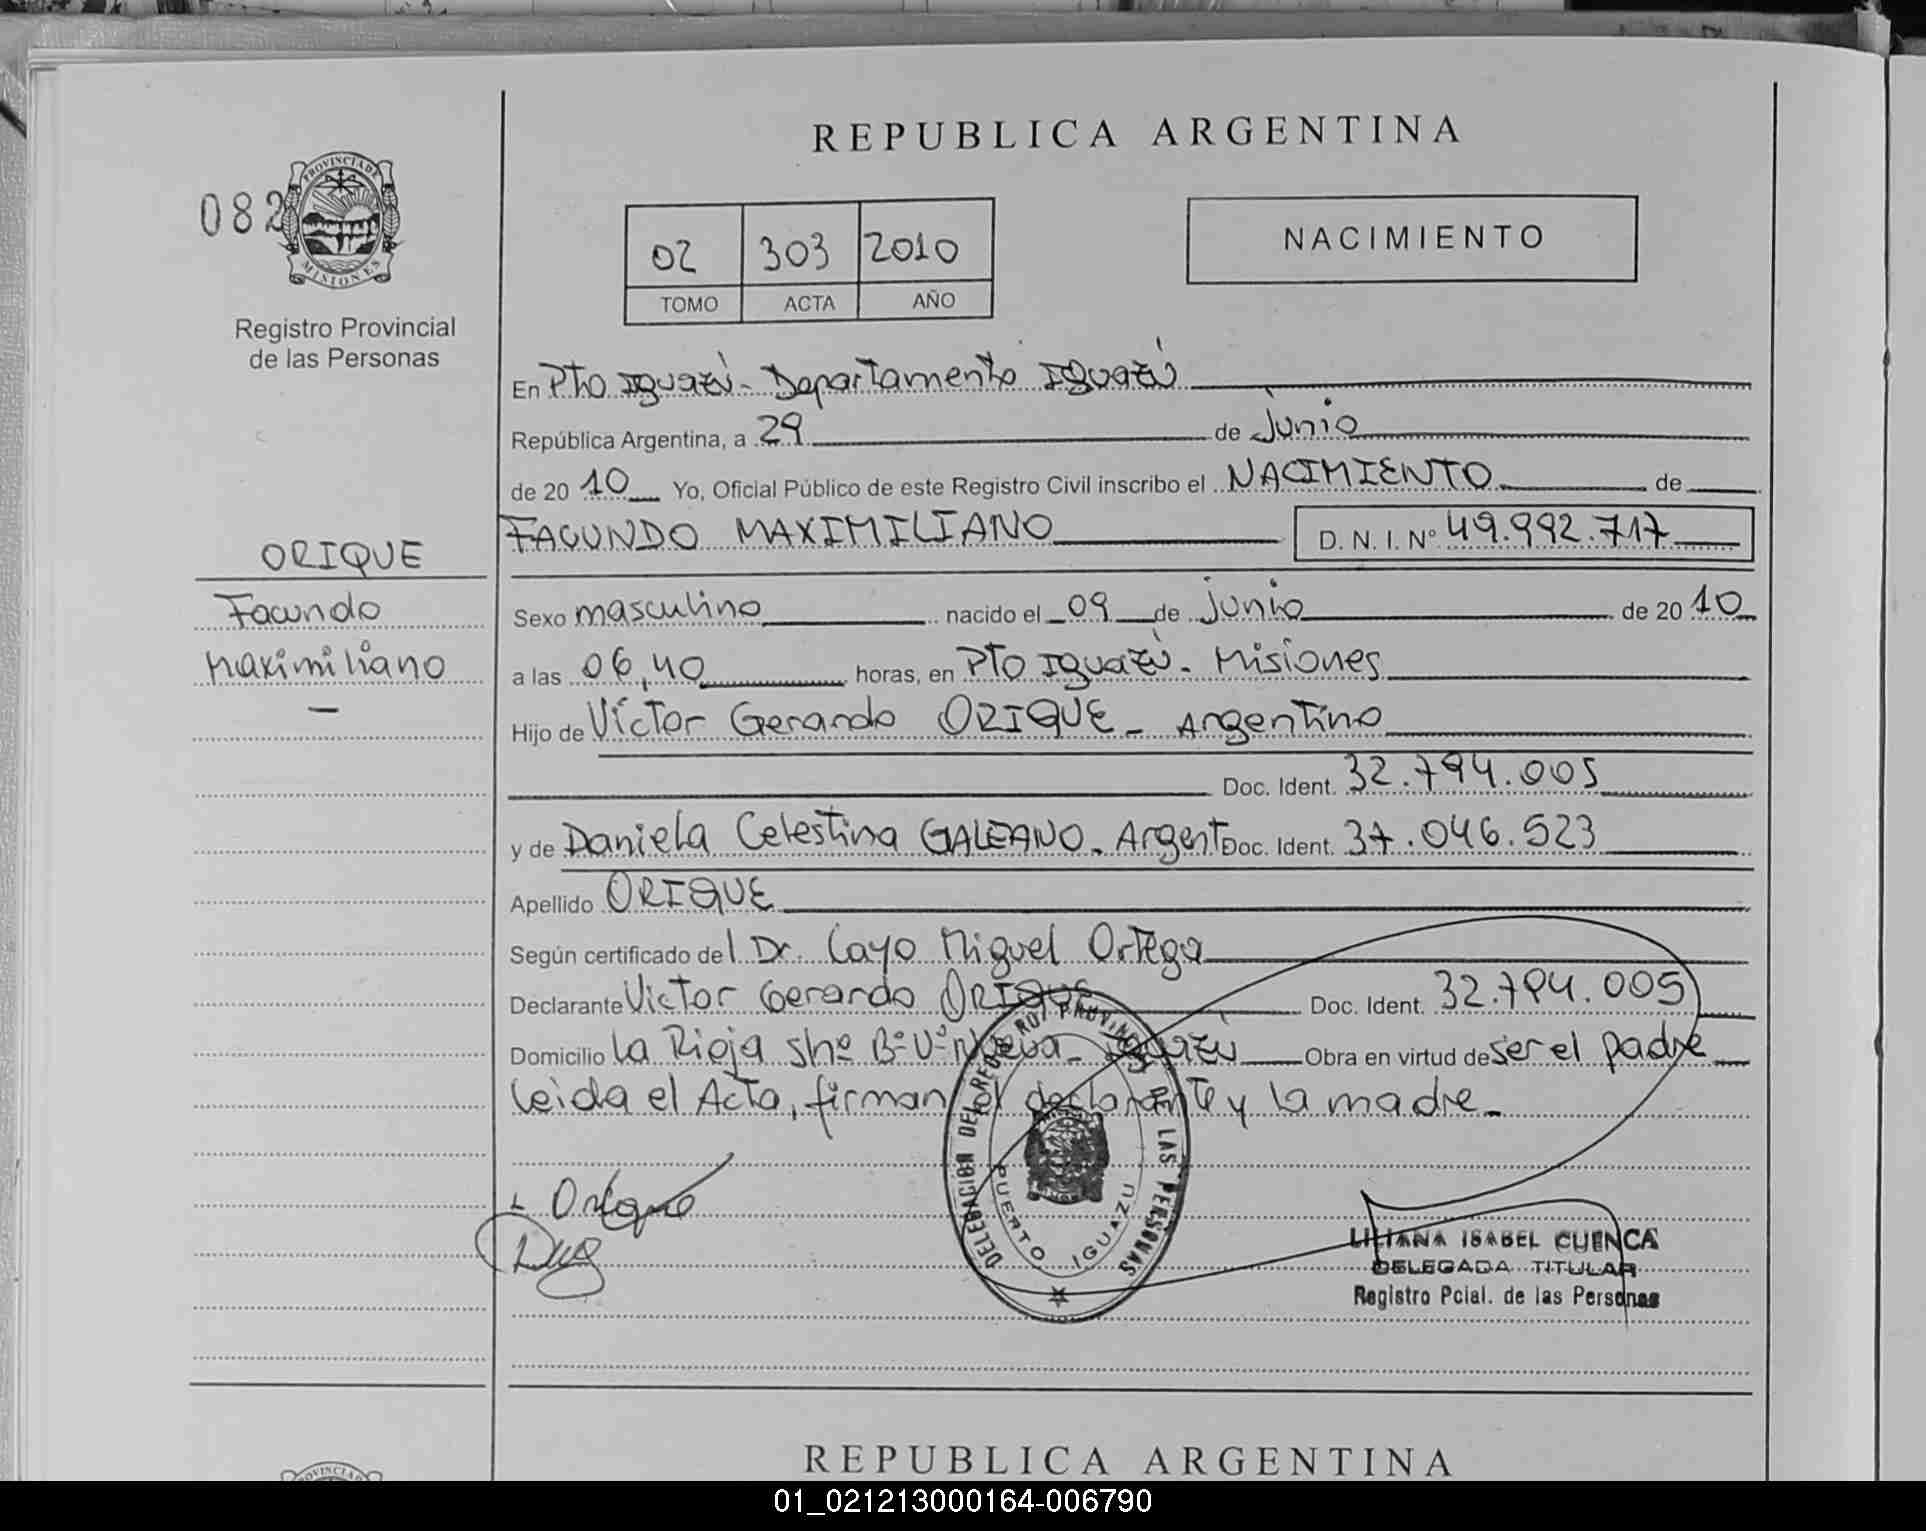 REPUBLICA ARGENTINA
082
PROVINCIA DE
MISIONES
Registro Provincial
de las Personas
02 303 2010
TOMO ACTA AÑO
NACIMIENTO
En Pto Iguazú - Departamento Iguazú
República Argentina, a 29 de junio
de 20 10 Yo, Oficial Público de este Registro Civil inscribo el NACIMIENTO de
FACUNDO MAXIMILIANO D. N. I. Nº 49.992.717
ORIQUE
Facundo
Maximiliano
-
Sexo masculino nacido el 09 de junio de 20 10
a las 06,40 horas, en Pto Iguazú - Misiones
Hijo de Víctor Gerardo ORIQUE - Argentino
Doc. Ident. 32.794.005
y de Daniela Celestina GALEANO - Argent Doc. Ident. 37.046.523
Apellido ORIQUE
Según certificado del Dr. Cayo Miguel Ortega
Declarante Victor Gerardo ORIQUE Doc. Ident. 32.794.005
Domicilio La Rioja s/nº Bº Vº Nueva - Iguazú Obra en virtud de ser el padre
Leida el Acta, firman el declarante y la madre -
DELEGACION DEL REG. PROVINCIAL DE LAS PERSONAS
PUERTO IGUAZU
Orique
LILIANA ISABEL CUENCA
DELEGADA TITULAR
Registro Pcial. de las Personas
REPUBLICA ARGENTINA
PROVINCIA
01_021213000164-006790